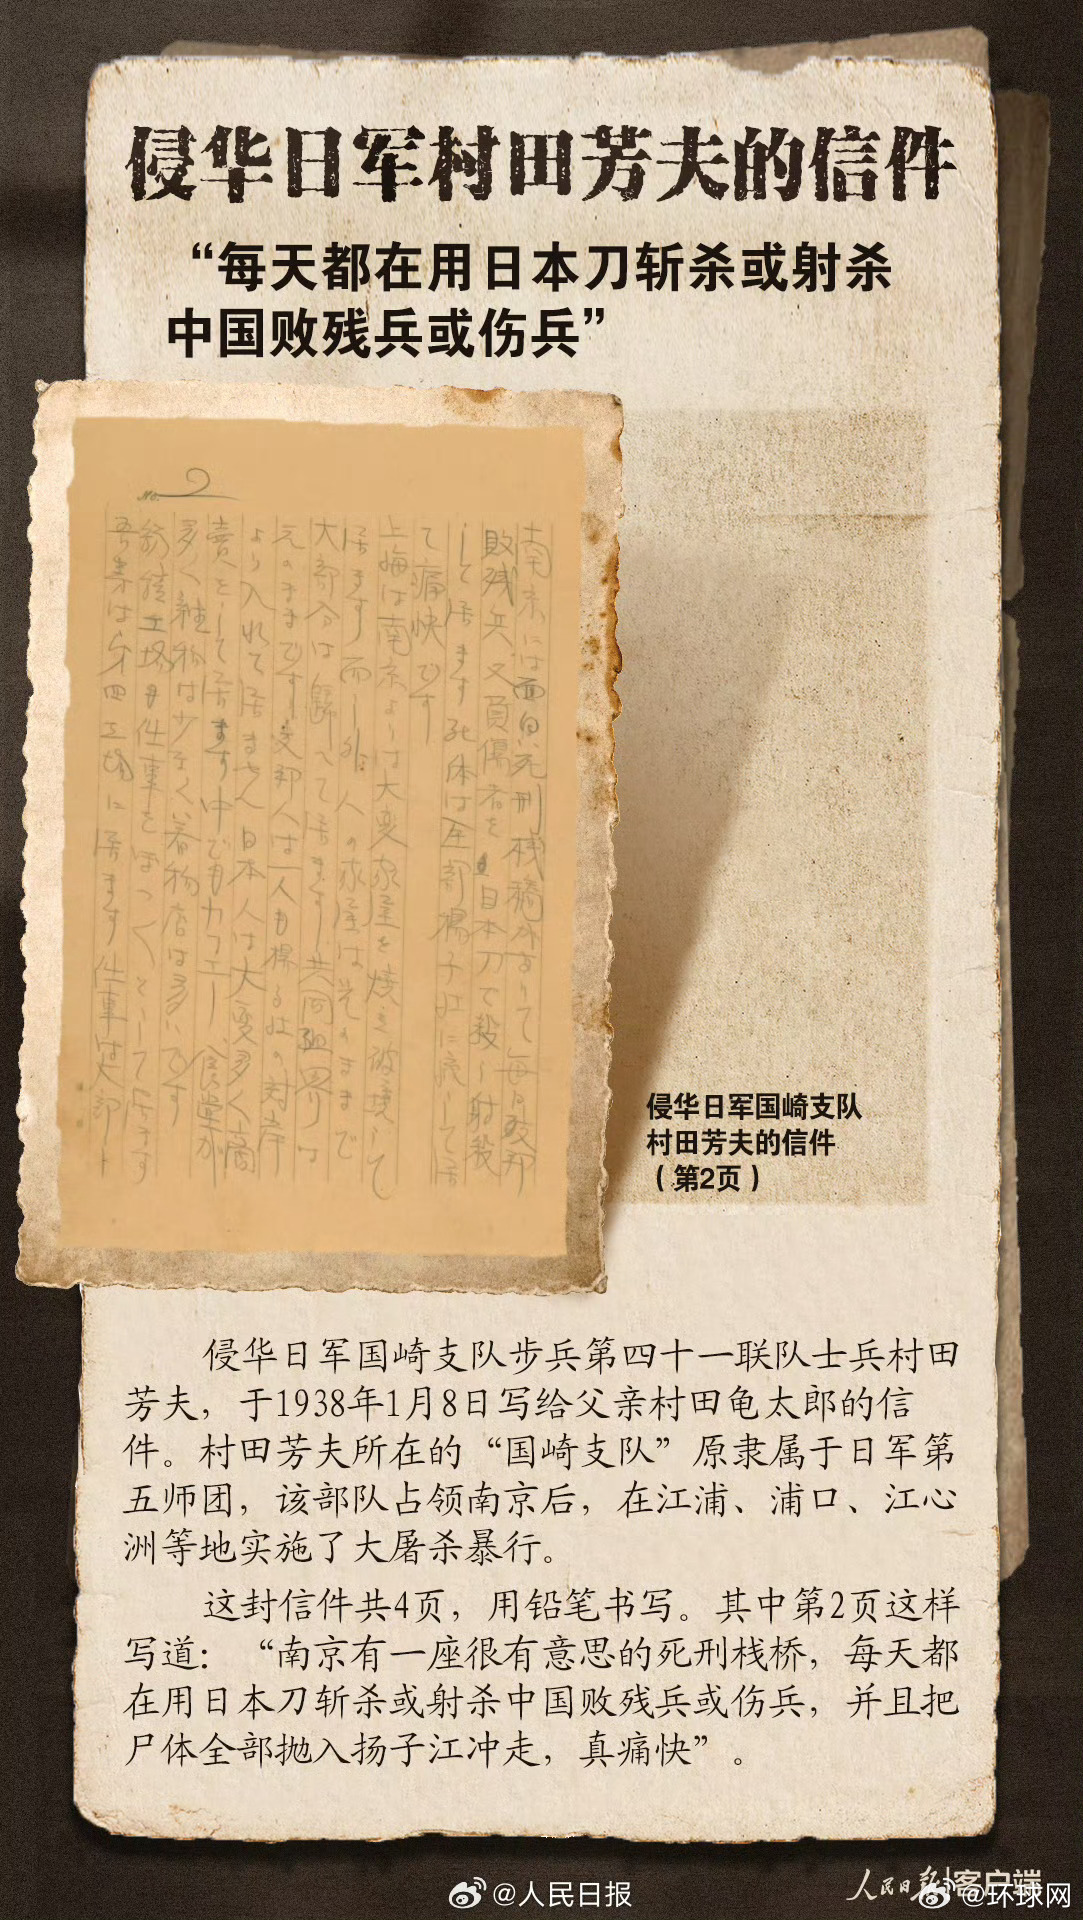 侵华日军村田芳夫的信件
“每天都在用日本刀斩杀或射杀
中国败残兵或伤兵”
No. 2
南京には面白い死刑桟橋があって毎日支那
敗残兵又負傷者を日本刀で殺し射殺
して居ます死体は全部揚子江に流して居
て痛快です
上海は南京よりは大変家屋を焼き破壊して
居ます而し外人の家屋は其のままで
大部分は歸へて居ます共同租界は
元のままです支那人は一人も揚子江の対岸
より入れて居ません日本人は大変多く商
賣をして居ます中でもカフエー食堂が
多く雑物は少なく着物店は多いです
紡績工場も仕事をぼつ〱として居ます
吾等は第四工場に居ます仕事は大部
侵华日军国崎支队
村田芳夫的信件
（第2页）
侵华日军国崎支队步兵第四十一联队士兵村田
芳夫，于1938年1月8日写给父亲村田龟太郎的信
件。村田芳夫所在的“国崎支队”原隶属于日军第
五师团，该部队占领南京后，在江浦、浦口、江心
洲等地实施了大屠杀暴行。
这封信件共4页，用铅笔书写。其中第2页这样
写道：“南京有一座很有意思的死刑栈桥，每天都
在用日本刀斩杀或射杀中国败残兵或伤兵，并且把
尸体全部抛入扬子江冲走，真痛快”。
人民日报客户端
@人民日报
@环球网